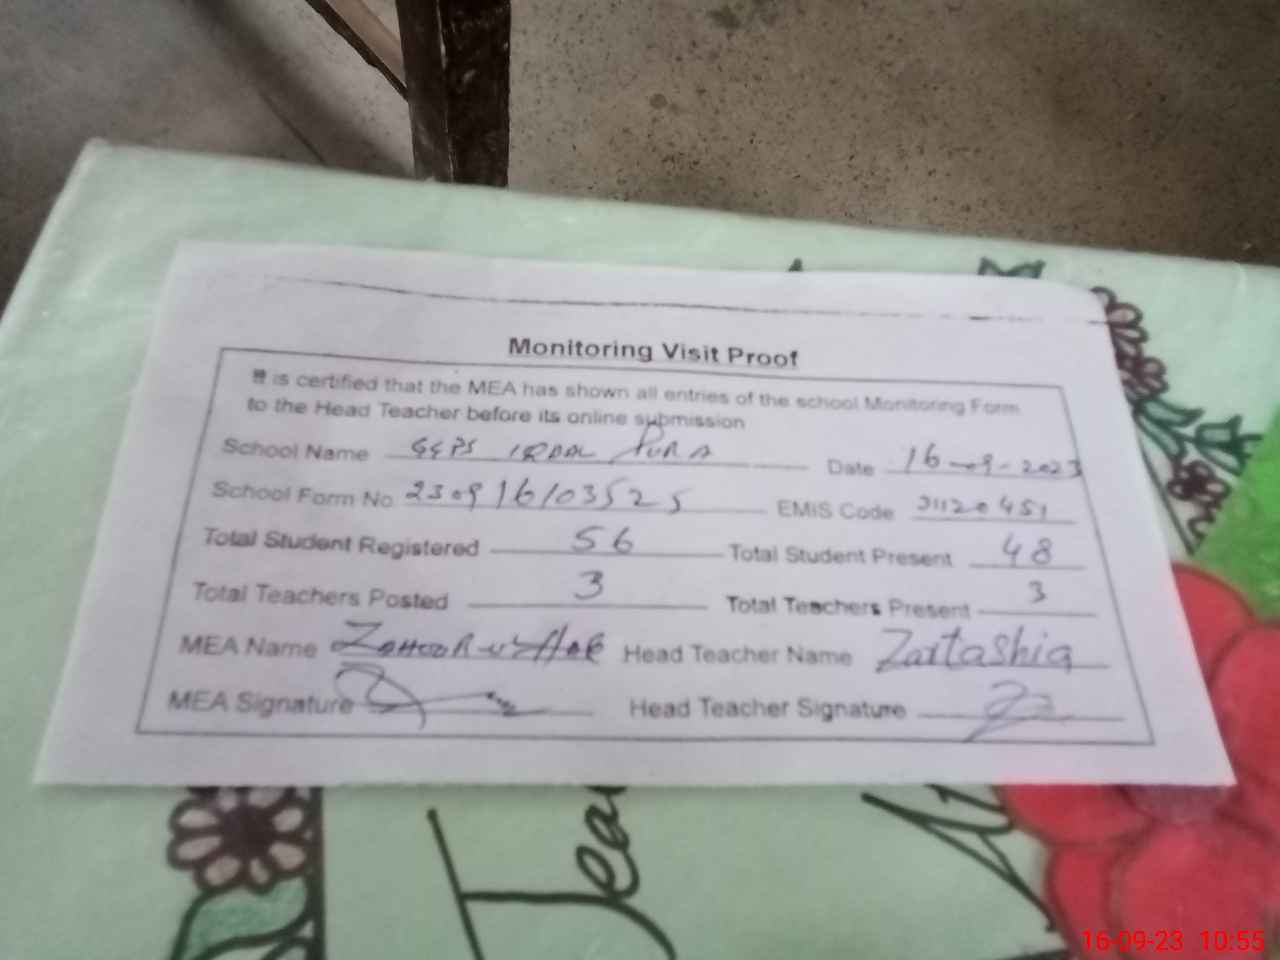 Monitoring Visit Proof
It is certified that the MEA has shown all entries of the school Monitoring Form
to the Head Teacher before its online submission
School Name GEPS IQBAL PURA Date 16-09-2023
School Form No 230916103525 EMIS Code 31120451
Total Student Registered 56 Total Student Present 48
Total Teachers Posted 3 Total Teachers Present 3
MEA Name ZAHOOR-UL-HAQ Head Teacher Name Zartashia
MEA Signature Head Teacher Signature
Tea
16-09-23 10:55